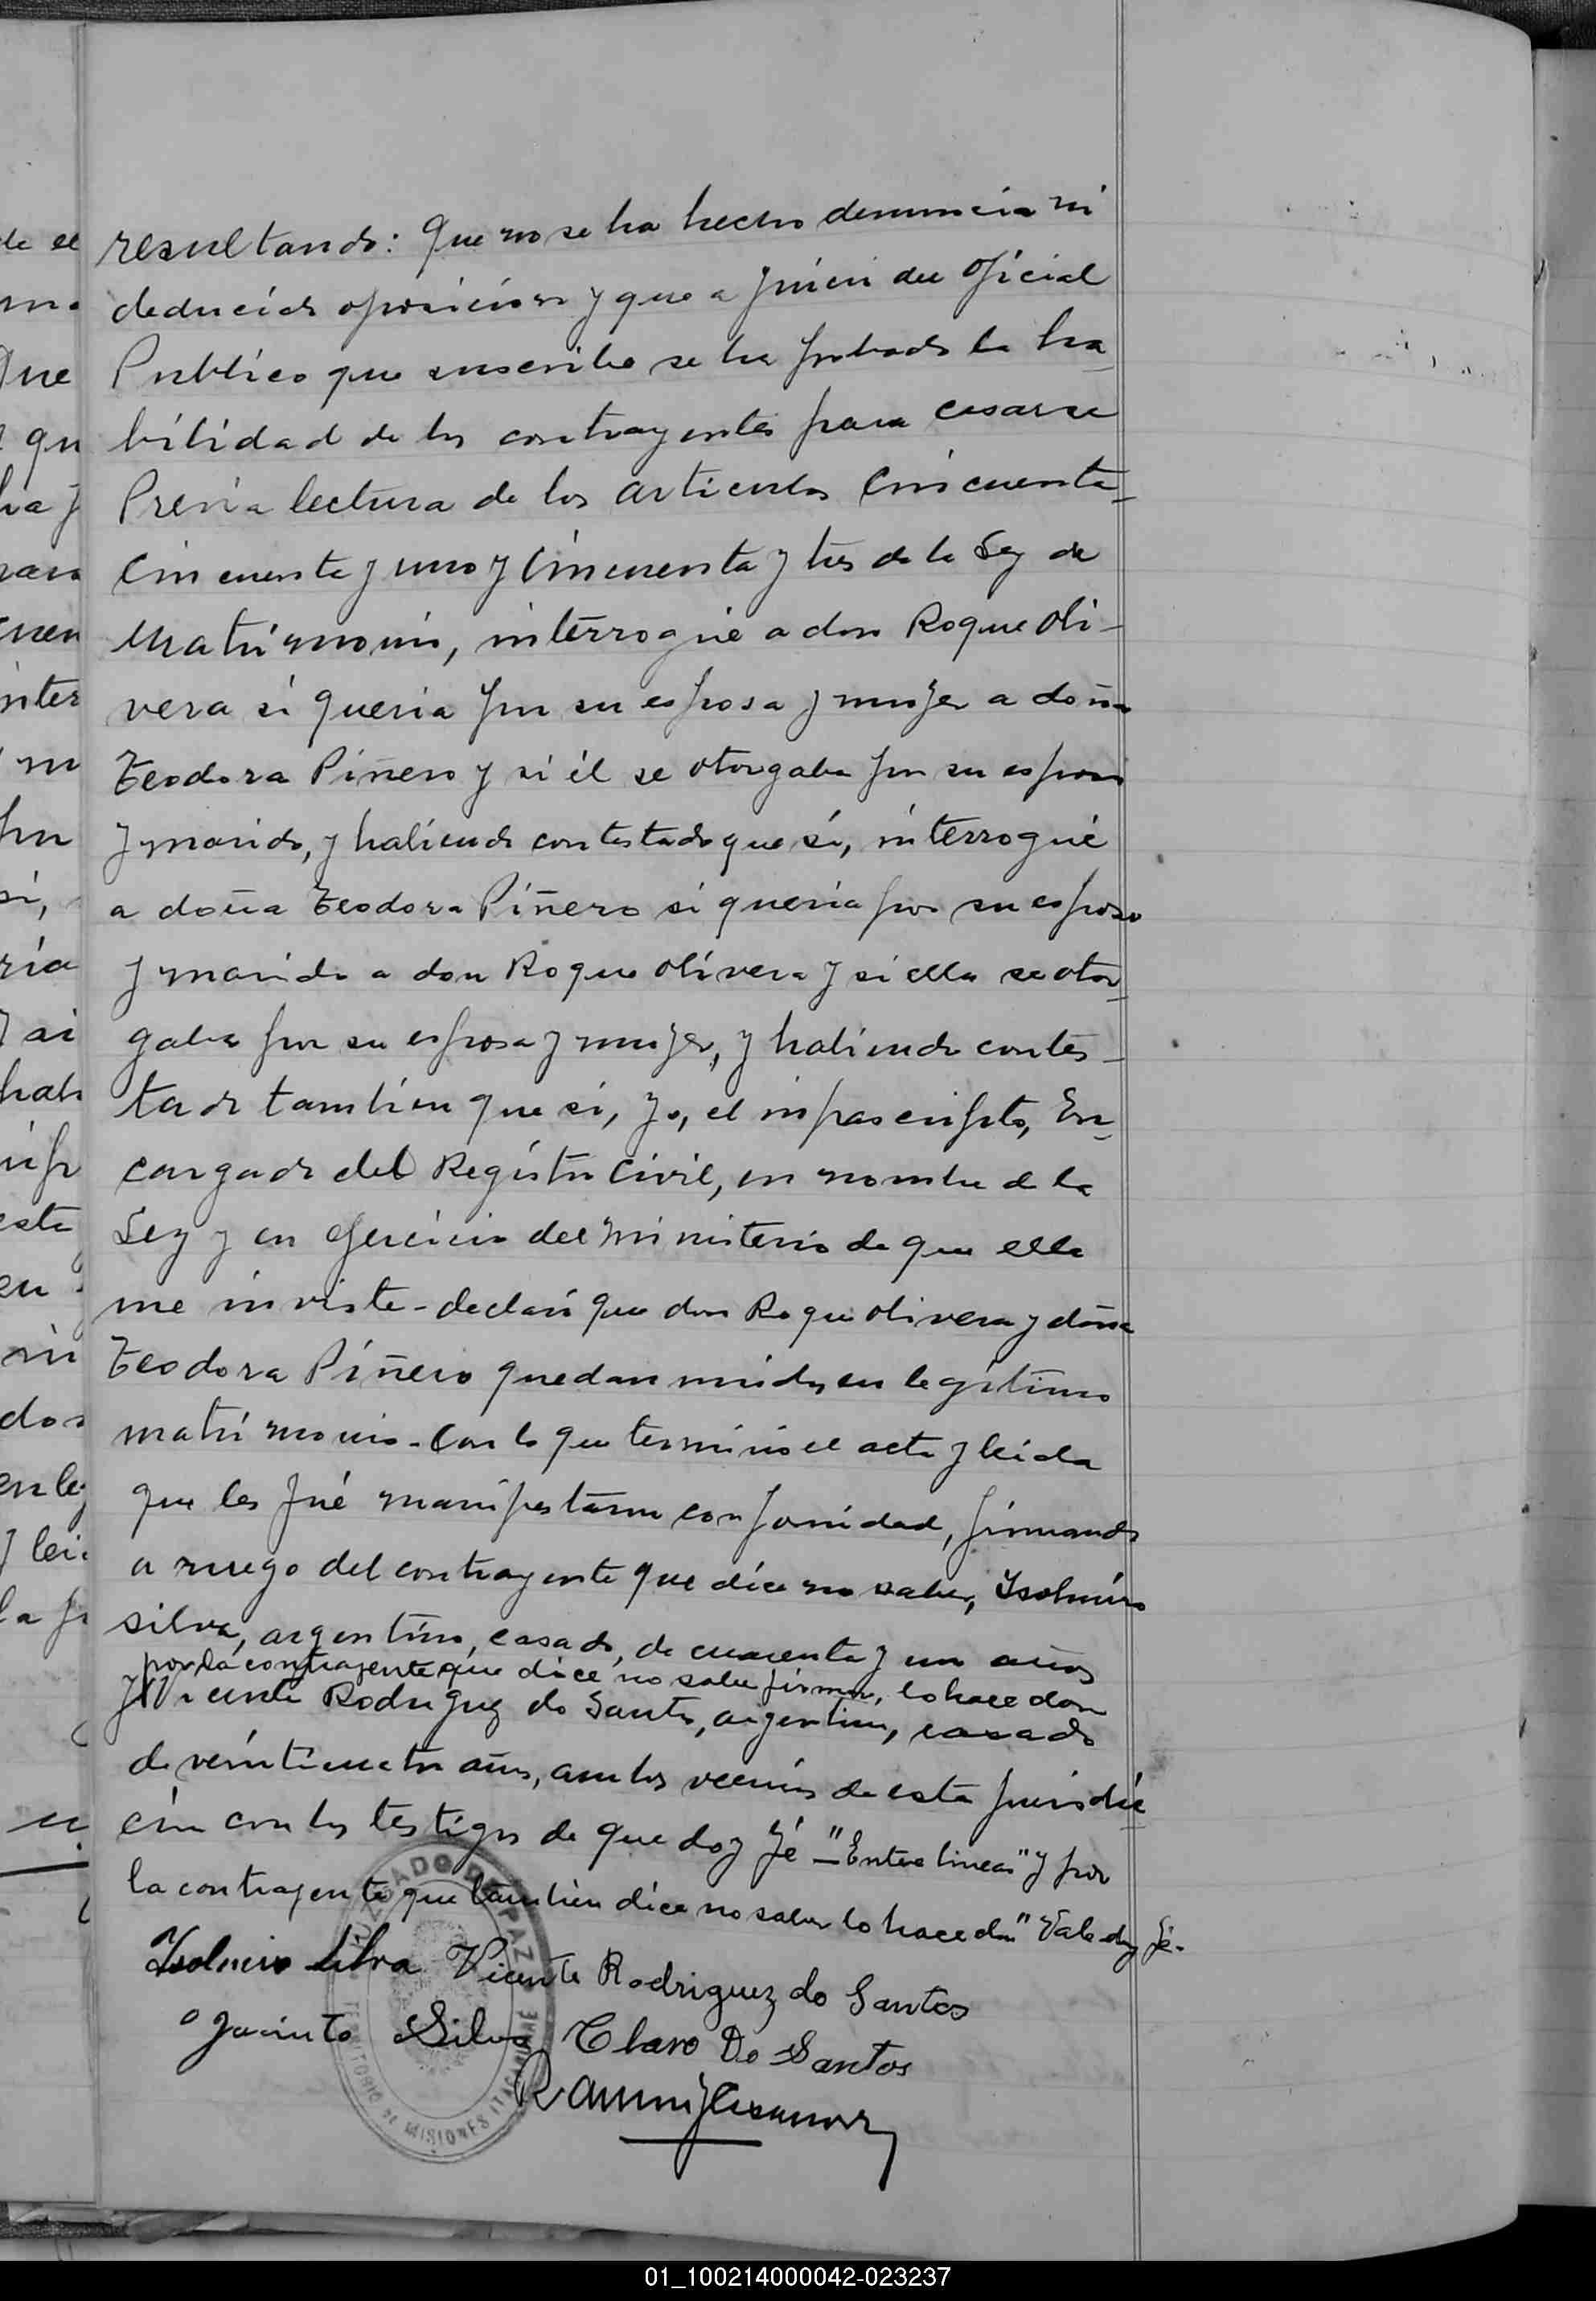 resultando: Que no se ha hecho denuncia ni
deducido oposicion y que a juicio del Oficial
Publico que suscribe se ha probado la ha-
bilidad de los contrayentes para casarse
Previa lectura de los articulos cincuenta-
cincuenta y uno y cincuenta y tres de la Ley de
Matrimonio, interrogué a don Roque Oli-
vera si queria por su esposa y mujer a doña
Teodora Piñero y si él se otorgaba por su esposo
y marido, y habiendo contestado que si, interrogué
a doña Teodora Piñero si queria por su esposo
y marido a don Roque Olivera y si ella se otor-
gaba por su esposa y mujer, y habiendo contes-
tado tambien que si, yo, el infrascripto, En-
cargado del Registro Civil, en nombre de la
Ley y en ejercicio del ministerio de que ella
me inviste - declaré que don Roque Olivera y doña
Teodora Piñero quedan unidos en legitimo
matrimonio - Con lo que terminó el acta y leida
que les fué manifestaron conformidad, firmando
a ruego del contrayente que dice no saber, Isolmiro
Silva, argentino, casado, de cuarenta y un años
por la contrayente que dice no saber firmar, lo hace don
y Vicente Rodriguez do Santos, argentino, casado
de veinticuatro años, ambos vecinos de esta jurisdic
ción con los testigos de que doy fé - "Entre lineas" y por
la contrayente que tambien dice no saber lo hace don" Vale doy fé.
Silva Vicente Rodriguez do Santos
Jacinto Silva Claro Do Santos
JUZGADO DE PAZ
TERRITORIO DE MISIONES
01_100214000042-023237